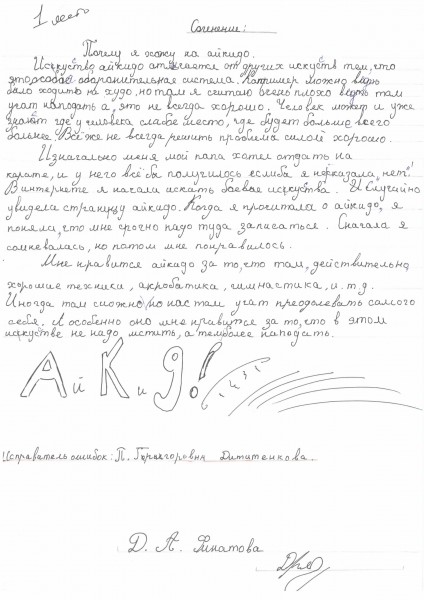 1 место
Сочинение:
Почему я хожу на айкидо.
Искусство айкидо отличается от других искусств тем, что
это особая оборонительная система. Например можно ведь
было ходить на худо. но там я считаю очень плохо ведь там
учат нападать а, это не всегда хорошо. Человек может и уже
знает где у человека слабое место, где будет больше всего
больнее. Всё же не всегда решить проблема силой хорошо.
Изначально меня мой папа хотел отдать на
карате, и у него всё бы получилось если бы я не сказала, нет"!
В интернете я начала искать боевые искуства. И случайно
увидела страницу айкидо. Когда я прочитала о айкидо, я
поняла, что мне срочно надо туда записаться. Сначала я
сомневалась, но потом мне понравилось.
Мне нравится айкидо за то, что там, действительно
хорошие техники, акробатика, гимнастика, и. т. д.
Иногда там сложно, но нас там учат преодолевать самого
себя. А особенно оно мне нравится за то, что в этом
искустве не надо мстить, а темболее нападать.
Айкидо!
Исправатель ошибок: П.
Д. А.